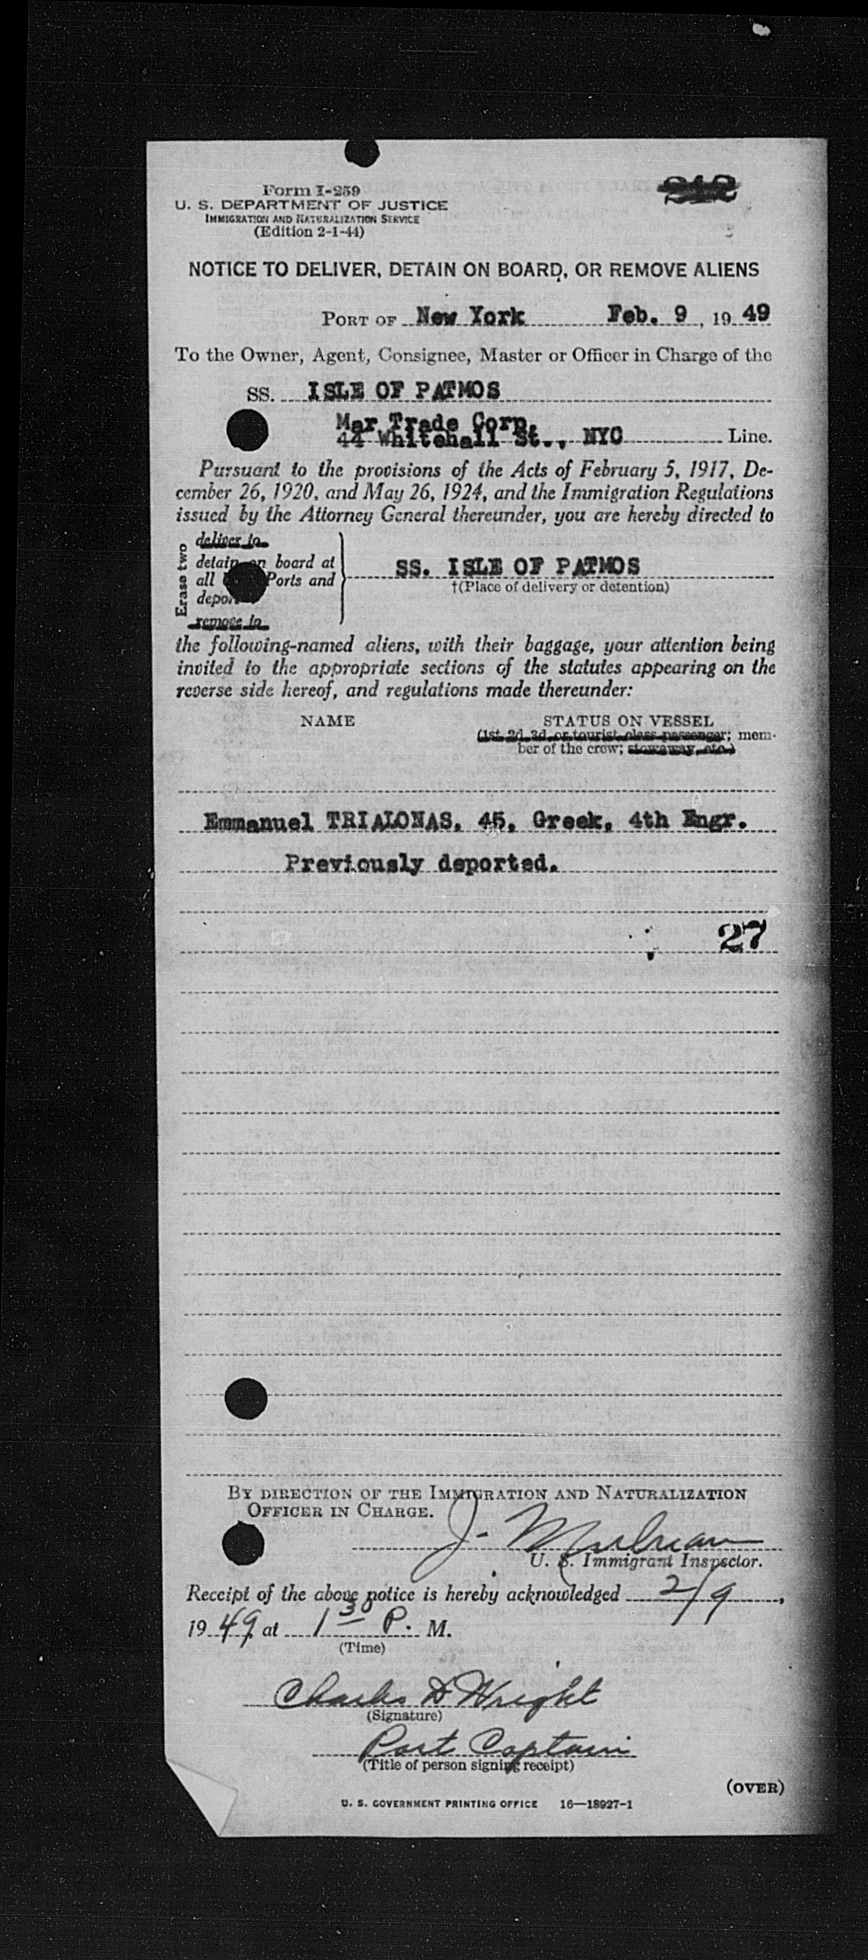 Form I-259
U. S. DEPARTMENT OF JUSTICE
IMMIGRATION AND NATURALIZATION SERVICE
(Edition 2-1-44)
212
NOTICE TO DELIVER, DETAIN ON BOARD, OR REMOVE ALIENS
PORT OF New York Feb. 9, 1949
To the Owner, Agent, Consignee, Master or Officer in Charge of the
SS. ISLE OF PATMOS
Mar Trade Corp.
44 Whitehall St., NYC Line.
Pursuant to the provisions of the Acts of February 5, 1917, De-
cember 26, 1920, and May 26, 1924, and the Immigration Regulations
issued by the Attorney General thereunder, you are hereby directed to
Erase two
deliver to
detain on board at
all Ports and
deport
remove to
SS. ISLE OF PATMOS
†(Place of delivery or detention)
the following-named aliens, with their baggage, your attention being
invited to the appropriate sections of the statutes appearing on the
reverse side hereof, and regulations made thereunder:
NAME STATUS ON VESSEL
(1st, 2d, 3d, or tourist class passenger; mem-
ber of the crew; stowaway, etc.)
Emmanuel TRIALONAS, 45, Greek, 4th Engr.
Previously deported.
27
BY DIRECTION OF THE IMMIGRATION AND NATURALIZATION
OFFICER IN CHARGE.
J.
U. S. Immigrant Inspector.
Receipt of the above notice is hereby acknowledged 2/9,
1949, at 1 30 P. M.
(Time)
Charles D Wright
(Signature)
Port Captain
(Title of person signing receipt)
(OVER)
U. S. GOVERNMENT PRINTING OFFICE 16—18927-1